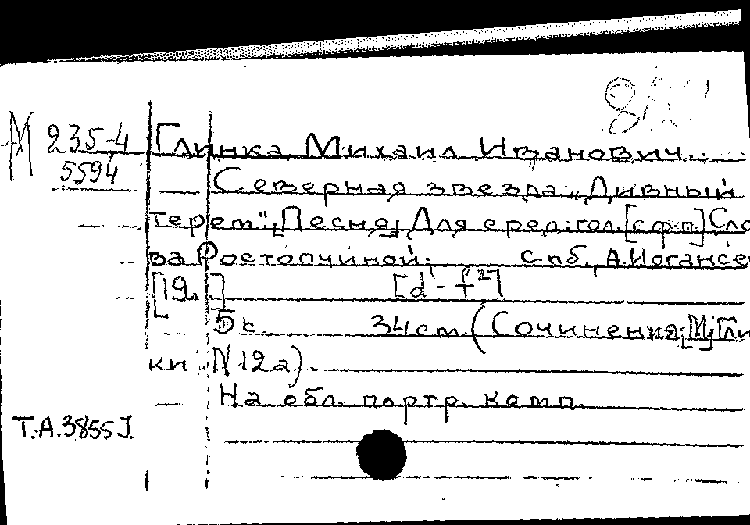 М 235-4 Глинка Михаил Иванович.
5594 Северная звезда. „Дивный
терем". [Песня] Для сред. гол. [с ф-п.] Сло
ва Ростопчиной. Спб., А. Иогансе
[19..] [d¹-f²]
5 с. 34 см. (Сочинения [М.] Гли
ки N 12а).
На обл. портр. комп.
Т.А.3855 J.